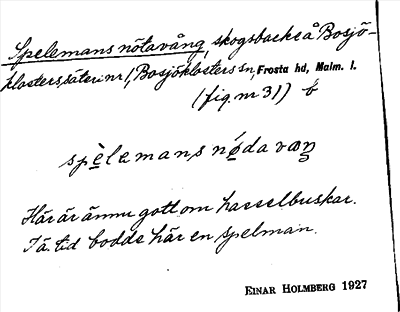 Spelemans nötavång, skogsbacke å Bosjö-
klosters säteri nr 1, Bosjöklosters sn, Frosta hd, Malm. l.
(fig. nr 31) b
spèlemans nǿda vaŋ
Här är ännu gott om hasselbuskar.
I ä. tid bodde här en spelman.
EINAR HOLMBERG 1927